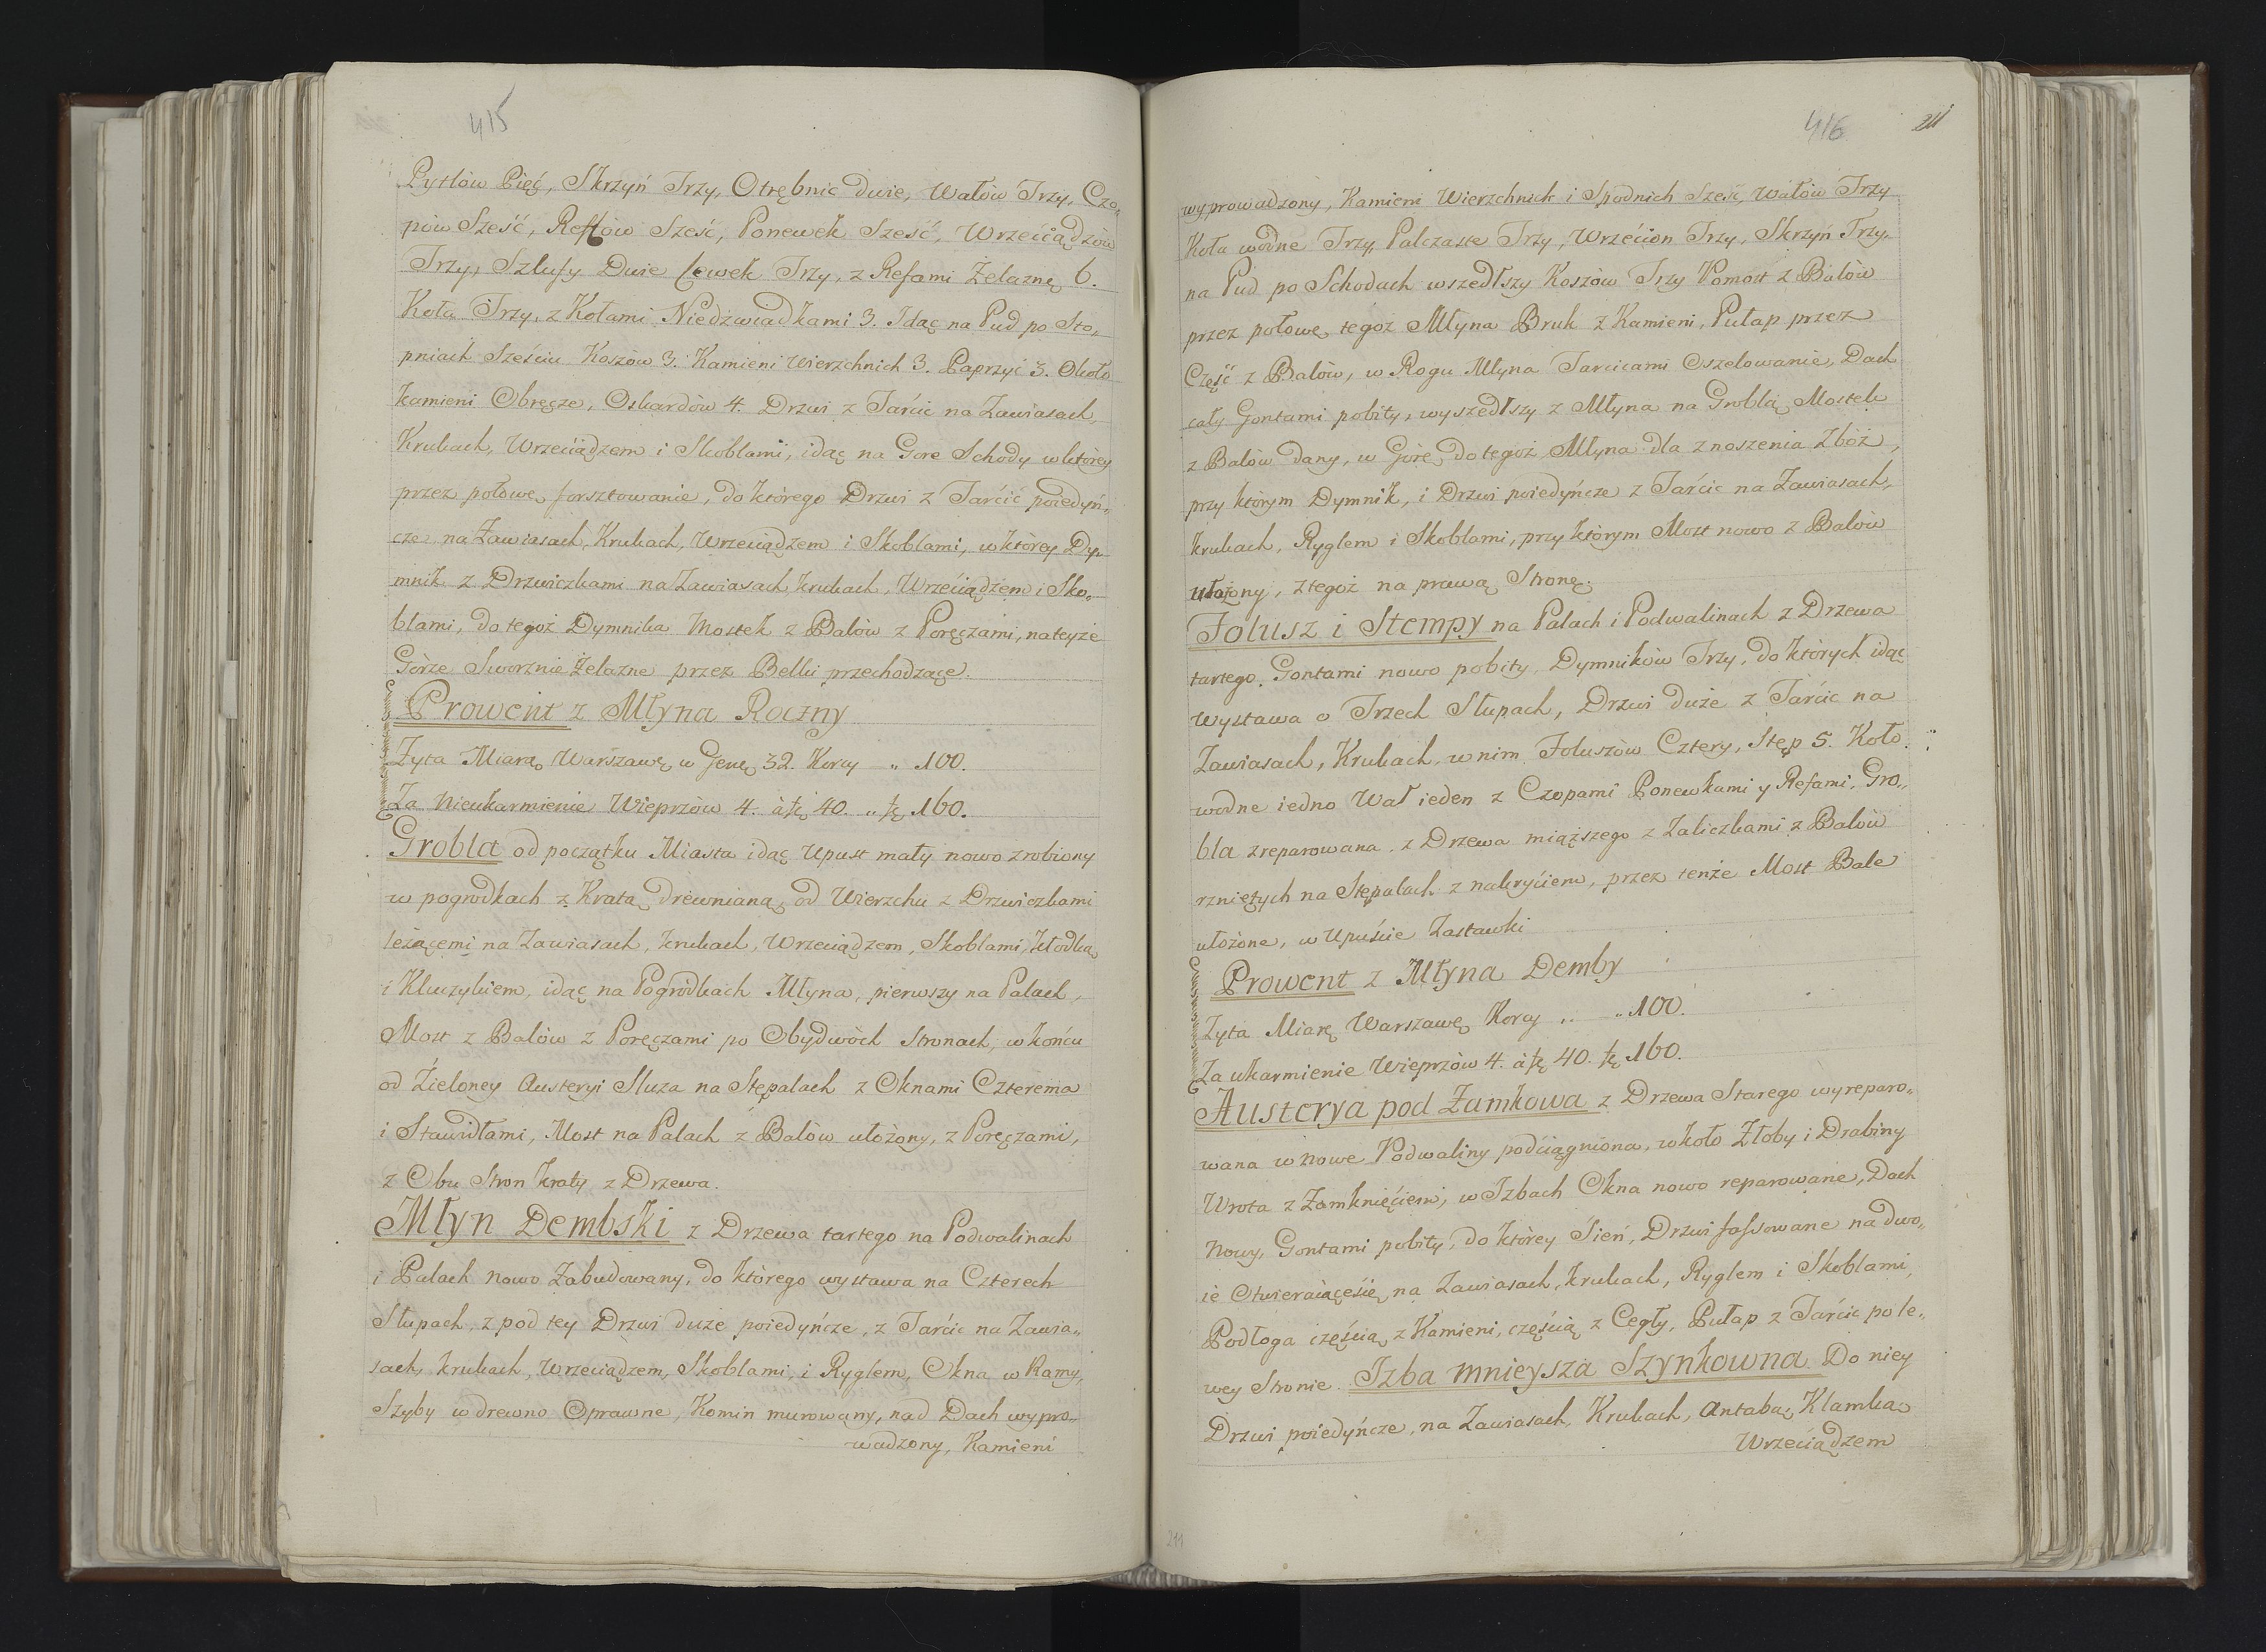 415
Pytlów Pięć, Skrzyń Trzy, Otrębnic dwie, Wałów Trzy, Czo„
pów Sześć, Reffów Sześć, Ponewek Sześć, Wrzeciądzów
Trzy, Szlufy Dwie Cewek Trzy, z Refami Żelaznę 6.
Koła Trzy, z Kołami Niedzwiadkami 3. Idąc na Pud po Sto„
pniach Sześciu Koszów 3. Kamieni Wierzchnich 3. Paprzyć 3. Około
Kamieni Obręcze, Oskardów 4. Drzwi z Tarcic na Zawiasach,
Krukach, Wrzeciądzem i Skoblami, idąc na Gore Schody w którey
przez połowę forsztowanie, do którego Drzwi z Tarcić poiedyń„
cze na Zawiasach, Krukach, Wrzeciądzem i Skoblami, w którey Dy„
mnik z Drzwiczkami na Zawiasach krukach, Wrzeciądzem i Sko„
blami, do tegoż Dymnika Mostek z Balów z Poręczami, na teyże
Górze Sworznie Żelazne przez Belki przechodzące.
Prowent z Młyna Roczny
Żyta Miarą Warszawę w Genę 32. Korcy „ 100.
Za Nieukarmienie Wieprzów 4. à fę 40. „ fę 160.
Grobla od początku Miasta idąc Upust mały nowo zrobiony
w pogrodkach z Kratą drewnianą, od Wierzchu z Drzwiczkami
leżącemi na Zawiasach, krukach, Wrzeciądzem, Skoblami, kłodką
i Kluczykiem, idąc na Pogródkach Młyna, pierwszy na Palach,
Most z Balów z Poręczami po Obydwóch Stronach, w końcu
od Zieloney Austeryi Sluza na Stępalach z Oknami Czterema
i Stawidłami, Most na Palach z Balów ułożony, z Poręczami,
z Obu Stron kraty z Drzewa.
Młyn Dembski z Drzewa tartego na Podwalinach
i Palach nowo Zabudowany, do którego wystawa na Czterech
Słupach, z pod tey Drzwi duże poiedyńcze, z Tarcic na Zawia„
sach, krukach, Wrzeciądzem, Skoblami, i Ryglem, Okna w Ramy,
Szyby w drewno Oprawne, Komin murowany, nad Dach wypro„
wadzony, Kamieni
416
211
wyprowadzony, Kamieni Wierzchnich i Spodnich Sześć, Wałów Trzy
Koła wodne Trzy, Palczaste Trzy, Wrzecion Trzy, Skrzyń Trzy
na Pud po Schodach wszedłszy Koszów Trzy Pomost z Balów
przez połowę tegoż Młyna Bruk z Kamieni, Pułap przez
Część z Balów, w Rogu Młyna Tarcicami Oszelowanie, Dach
cały Gontami pobity, wyszedłszy z Młyna na Groblą Mostek
z Balów dany, w Górę, do tegoż Młyna dla znoszenia Zbóż,
przy którym Dymnik, i Drzwi poiedyńcze z Tarcic na Zawiasach,
krukach, Ryglem i Skoblami, przy którym Most nowo z Balów
ułożony, z tegoż na prawą Stronę.
Folusz i Stempy na Palach i Podwalinach z Drzewa
tartego, Gontami nowo pobity, Dymników Trzy, do których idąc
wystawa o Trzech Słupach, Drzwi duże z Tarcic na
Zawiasach, Krukach, w nim Foluszów Cztery, Stęp 5. Koło
wodne iedno Wał ieden z Czopami Ponewkami y Refami, Gro„
bla zreparowana, z Drzewa miąższego z Zaliczkami z Balów
rzniętych na Stępalach z nakryćiem, przez tenże Most Bale
ułożone, w Upuście Zastawki
Prowent z Młyna Demby
Żyta Miarę Warszawę Korcy „ „ 100.
Za ukarmienie Wieprzów 4. à fę 40. fę 160.
Austerya pod Zamkowa z Drzewa Starego wyreparo„
wana w nowe Podwaliny podciągniona, w koło Złoby i Drabiny
Wrota z Zamknięciem, w Izbach Okna nowo reparowane, Dach
Nowy, Gontami pobity, do którey Sień, Drzwi fassowane na dwo„
ie Otwieraiącesię na Zawiasach, krukach, Ryglem i Skoblami,
Podłoga częścią z Kamieni, częścią z Cegły, Pułap z Tarcic po le„
wey Stronie. Izba mnieysza Szynkowna Do niey
Drzwi poiedyńcze, na Zawiasach, Krukach, Antabą, Klamką
Wrzeciądzem
211